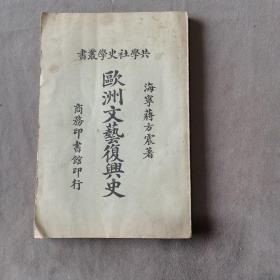 書叢學史社學共
海寧蔣方震著
歐洲文藝復興史
商務印書館印行